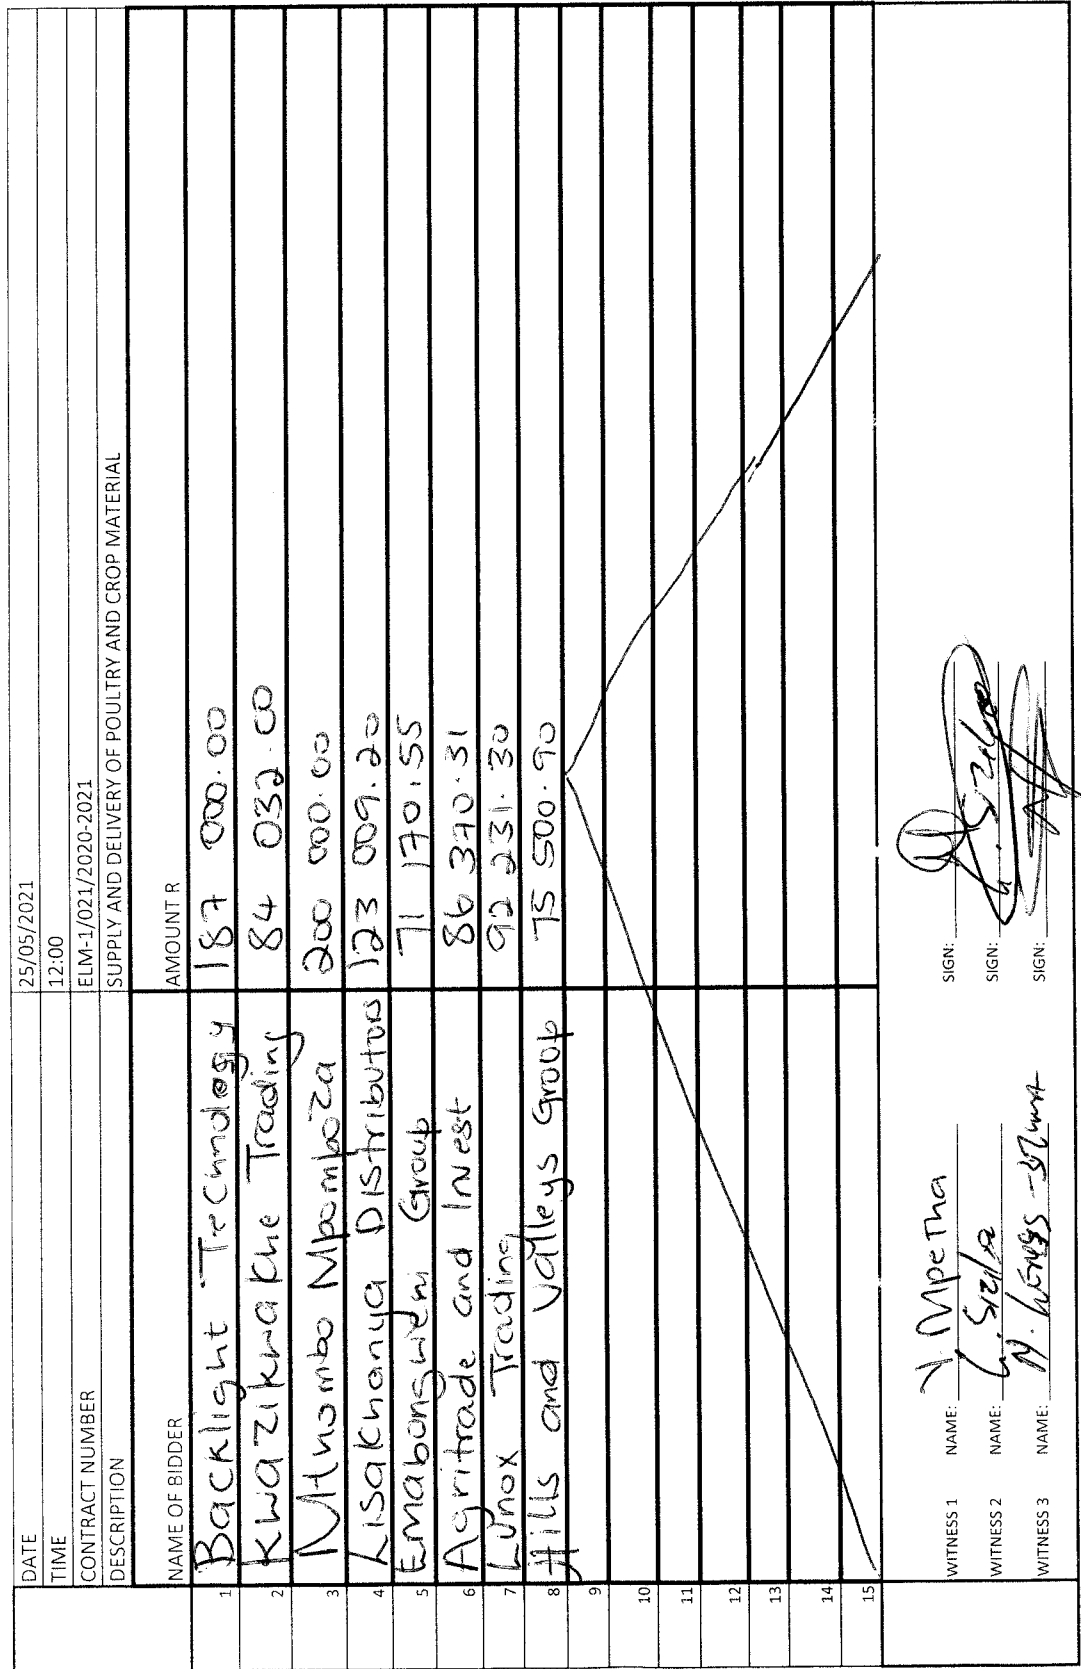 DATE 25/05/2021
TIME 12:00
CONTRACT NUMBER ELM-1/021/2020-2021
DESCRIPTION SUPPLY AND DELIVERY OF POULTRY AND CROP MATERIAL
NAME OF BIDDER AMOUNT R
1 Backlight Technology 187 000.00
2 Kwazikwakhe Trading 84 032.00
3 Mthombo Mpomboza 200 000.00
4 Lisakhanya Distributors 123 009.20
5 Emabongweni Group 71 170.55
6 Agritrade and Invest 86 370.31
7 Lunox Trading 92 231.30
8 Hills and Valleys Group 75 500.90
9
10
11
12
13
14
15
WITNESS 1 NAME: Y. Mpetha SIGN:
WITNESS 2 NAME: SIGN:
WITNESS 3 NAME: N. SIGN: